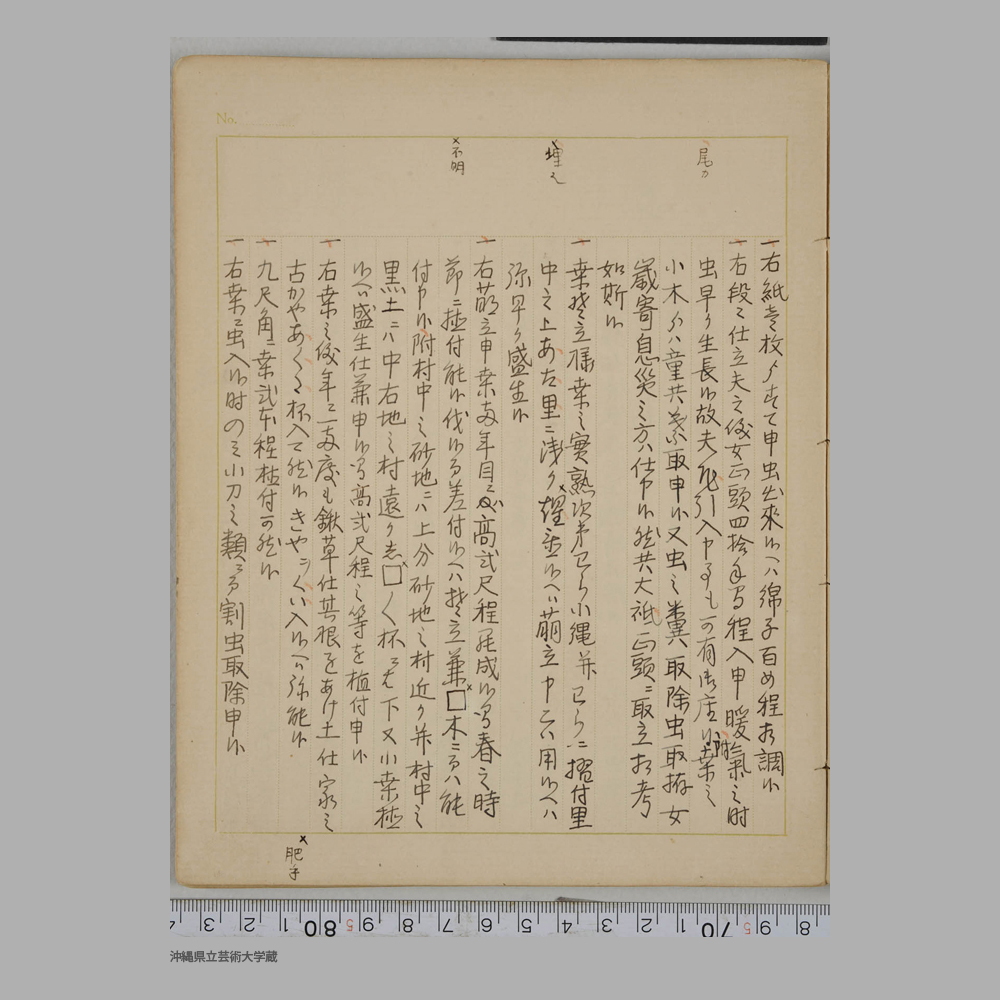 尾カ
埋之
×不明
一右紙壱枚ゟすて申虫出来候ヘハ綿子百め程相調候
一右段々仕立夫之儀女正頭四拾手ニ而程入申 暖氣之時
虫早ク生長候故夫尾引入申事も可有御座候附桑之
小木ゟハ童共ニ而茶取申候又虫之糞取除虫取拵女
歳寄息災之方ハ仕申候然共大祗正頭ニ取立相考
如斯候
一桑埜立様桑之實熟次第巳ら小縄并巳らニ摺付里
中之上あた里ニ浅ク×埋並候ヘハ萠立申ニ付用候ヘハ
弥早ク盛生候
一右萠立申桑両年目ニ必高弐尺程罷成候而春之時
節ニ植付能候伐候而差付候ヘハ埜立兼×□木ニ而ハ能
付申候附村中之砂地ニハ上分砂地之村近ク并村中之
黒土ニハ中右地之村遠ク志×□く杯ニ而下又小桑植
候ヘハ盛生仕兼申候而高弐尺程之等を植付申候
一右桑之儀年ニ両度も鍬草仕其根をあけ土仕家之
古かやあくる杯入て然候きやうくい入候ヘハ弥能候
一九尺角ニ桑弐本程植付可然候
一右桑ニ虫入候時のミ小刀之類ニ而割虫取除申候
×肥手
No.
沖縄県立芸術大学蔵